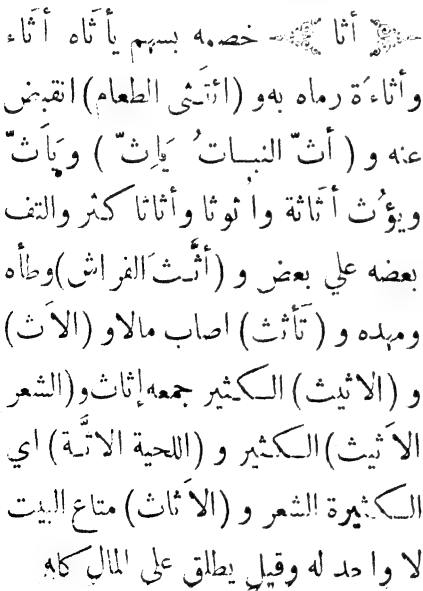 أثا خصمه بسهم يأثاه أثاء
وأثاءَة رماه به و (ائتثى الطعام) انقبض
عنه و (أثّ النبات ُ يَاِثّ ) ويَاَثّ
ويؤُث أثاثة واُثوثا وأثاثا كثر والتف
بعضه علي بعض و (أثَّث الفراش) وطأه
ومهده و (تَأثث) اصاب مالا و (الاَث)
و (الاثيث) الكثير جمعه إثاث و (الشعر
الاَثيث) الكثير و (اللحية الاثَّة) اي
الكثيرة الشعر و (الاَثاث) متاع البيت
لا واحد له وقيل يطلق على المال كله